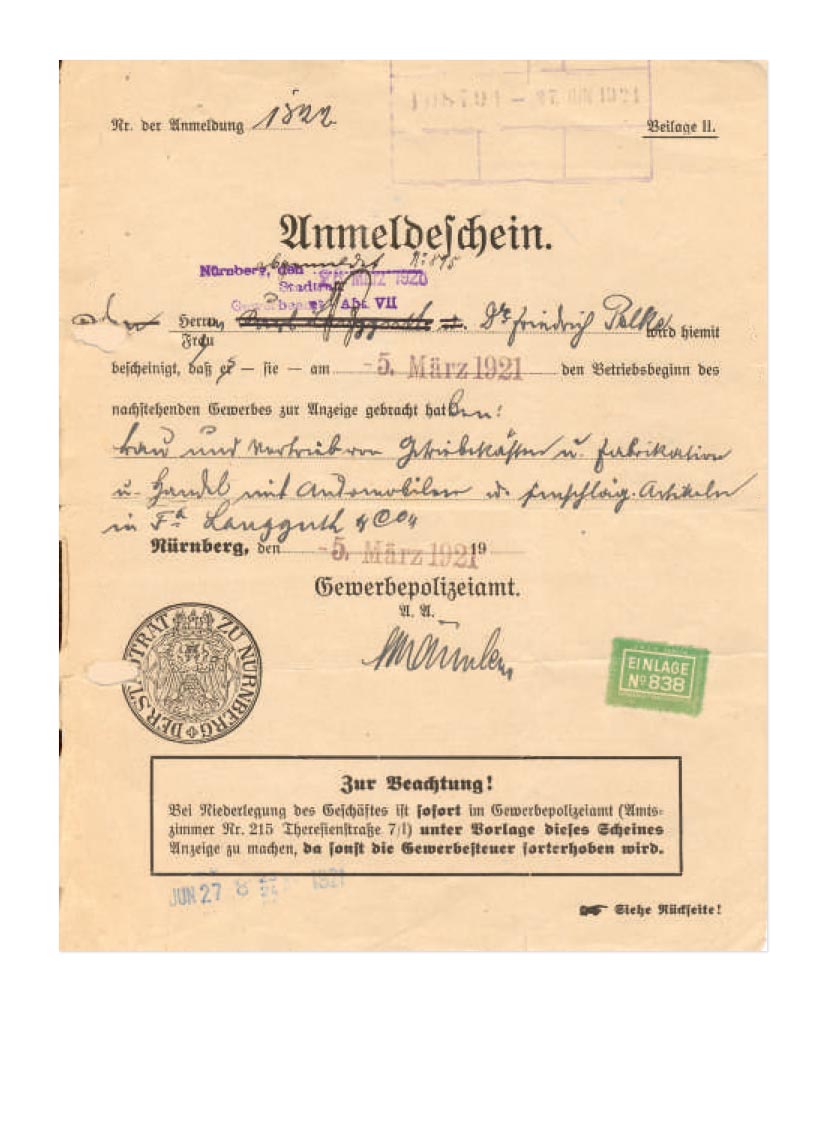 Nr. der Anmeldung 1822
Beilage II.
Anmeldeschein.
abgemeldet No 895
Nürnberg, den MÄRZ 192
Stadtrat
Gewerbeamt Abt. VII
Herrn Dr. Friedrich Polke wird hiemit
Frau
bescheinigt, daß er – sie – am -5. März 1921 den Betriebsbeginn des
nachstehenden Gewerbes zur Anzeige gebracht haben:
Bau und Vertrieb von Getriebekästen u. Fabrikation
u. Handel mit Automobilen u. einschläg. Artikeln
in Fa Langguth & Co
Nürnberg, den -5. März 1921 19
Gewerbepolizeiamt.
A. A.
DER STADTRAT ZU NÜRNBERG
EINLAGE
No 838
Zur Beachtung!
Bei Niederlegung des Geschäftes ist sofort im Gewerbepolizeiamt (Amts-
zimmer Nr. 215 Theresienstraße 7/I) unter Vorlage dieses Scheines
Anzeige zu machen, da sonst die Gewerbesteuer forterhoben wird.
JUN 27 8 1921
Siehe Rückseite!